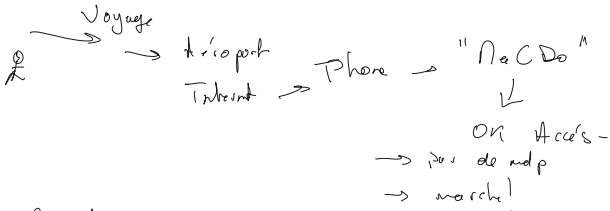 Voyage
Aéroport
Internet
Phone
"MacDo"
OK Accés
pas de mdp
marche!